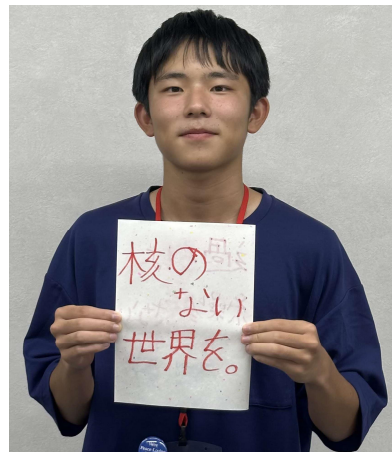 核の
ない
世界を。